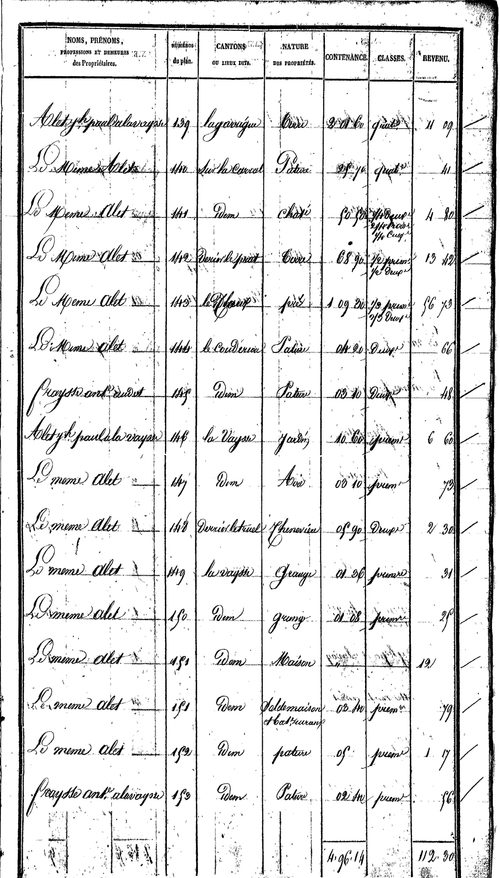 NOMS, PRÉNOMS, PROFESSIONS ET DEMEURES des Propriétaires. NUMÉROS du plan. CANTONS OU LIEUX DITS. NATURE DES PROPRIÉTÉS. CONTENANCE. CLASSES. REVENU.
Alet paul alavaysse 139 lagarrigue Terre 2 01 60 quat.e 11 09
Le Meme Alet 140 Sur la Pature 25 70 quat.e 41
Le Meme Alet 141 Idem chaté 50 50 4 80
Le Meme Alet 142 Terre 68 90 1/2 prem 1/2 Deux.e 13 42
Le Meme alet 143 pré 1 09 20 1/3 prem 2/3 Deux.e 56 73
Le Meme alet 144 le couderc Pature 04 20 Deux.e 66
fraysse ant. 145 Idem Pature 03 10 Deux.e 48
Alet paul à la vaysse 146 la Vaysse jardin 10 60 prem.e 6 60
Le meme alet 147 Idem 03 10 prem.e 73
Le meme alet 148 Chenevière 05 90 Deux.e 2 30
Le meme alet 149 la vaysse Grange 01 26 prem.e 31
Le meme alet 150 Idem grange 01 08 prem.e 25
Le meme alet 151 Idem Maison 12
Le meme alet 151 Idem Soldemaison 03 40 prem.e 79
Le meme alet 152 Idem pature 05 prem.e 1 17
fraysse ant. alavaysse 153 Idem Pature 02 40 prem.e 56
4 96 14 112 30